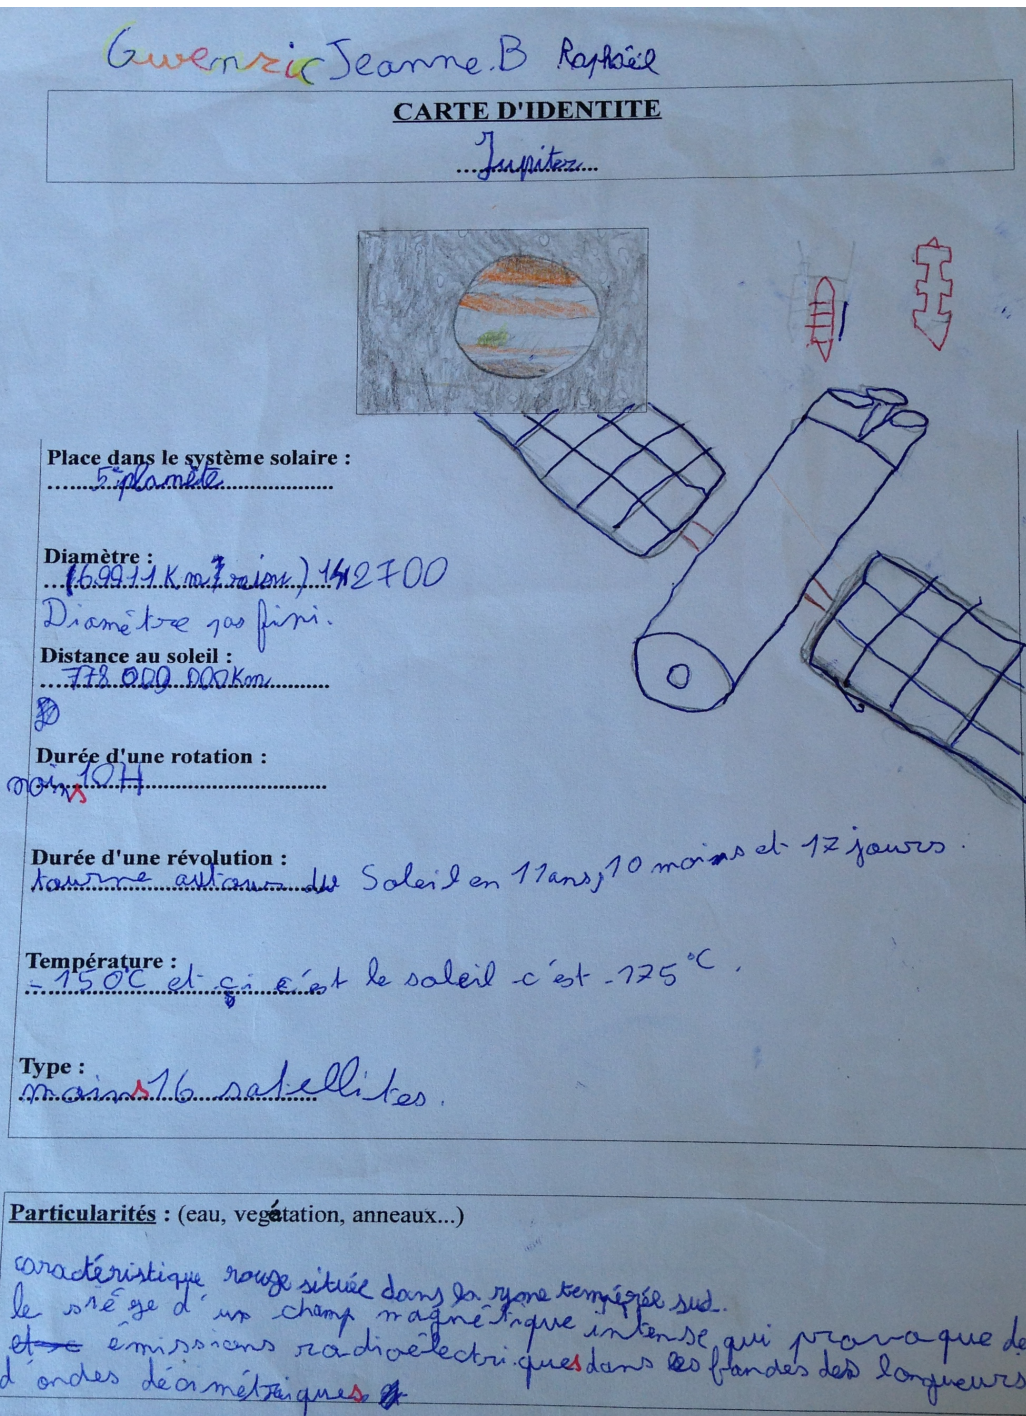 Gwenzic Jeanne.B Raphaël
CARTE D'IDENTITE
...Jupiter...
Place dans le système solaire :
5e planète
Diamètre :
(69911 Km rayon) 142700
Diamètre pas fini.
Distance au soleil :
778 000 000Km
Durée d'une rotation :
moins 10H
Durée d'une révolution :
tourne autour du Soleil en 11ans, 10 moins et 17 jours.
Température :
-150°C et çi c'est le soleil c'est -175°C.
Type :
moins 16 satellites.
Particularités : (eau, végétation, anneaux...)
caractéristique rouge située dans la zone tempérée sud.
le siége d'un champ magnétique intense qui provoque de
émissions radioélectriques dans les bandes des longueurs
d'ondes décimétriques